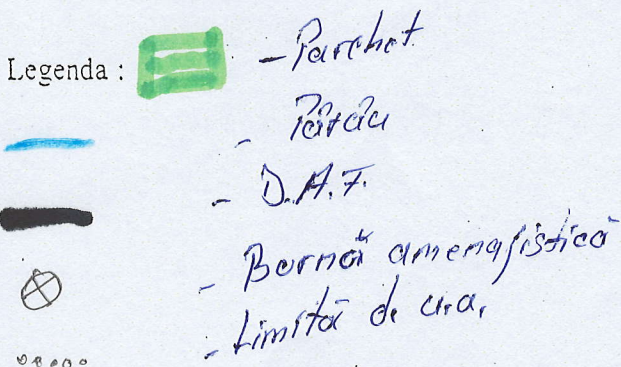 Legenda : - Parchet
- Pârâu
- D.A.F.
- Bornă amenajistică
- Limită de u.a.